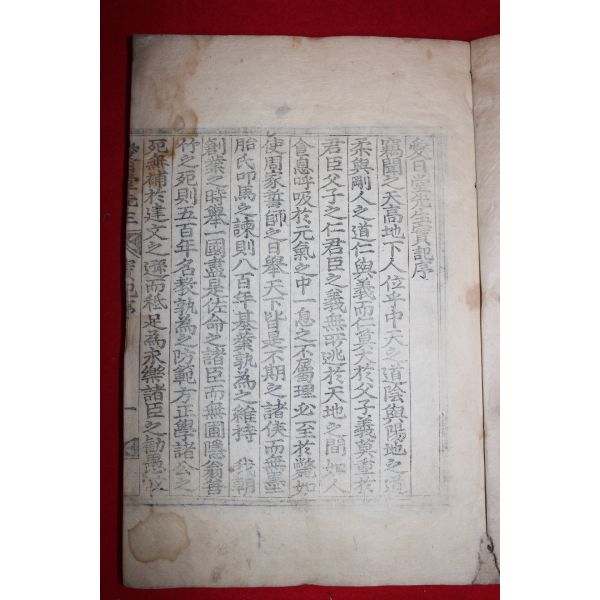 愛日堂先生實記序
竊聞之天高地下人位乎中天之道陰與陽地之道
柔與剛人之道仁與義而仁莫大於父子義莫重於
君臣父子之仁君臣之義無所逃於天地之間如人
食息呼吸於元氣之中一息之不屬理必至於斃如
使周家誓師之日擧天下皆是不期之諸侯而無墨
胎氏叩馬之諫則八百年基業孰爲之維持 我朝
創業之時舉一國盡是佐命之諸臣而無圃隱翁善
竹之死則五百年名敎孰爲之防範方正學諸公之
死無補於建文之遜而秪足爲永樂諸臣之勸愚
實記序 一